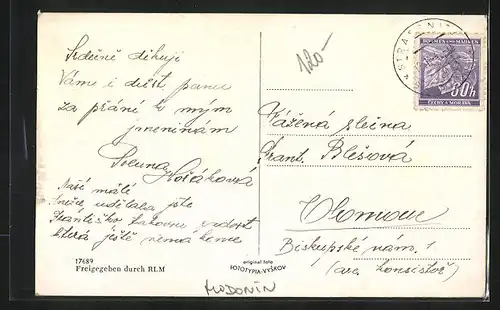 Srdečně děkuji
Vám i dust. panu
za přání k mým
jmeninám
Horáková
Naší malé
udělala jste
radost
která ještě nemá konce.
17689
Freigegeben durch RLM
original foto
FOTOTYPIA-VYŠKOV
HODONÍN
120-
STRAŽNI
BÖHMEN UND MÄHREN
80h
ČECHY A MORAVA
Vážená slečna
Frant. Blešová
Olomouc
Biskupské nám. 1
(arc. konsistoř)